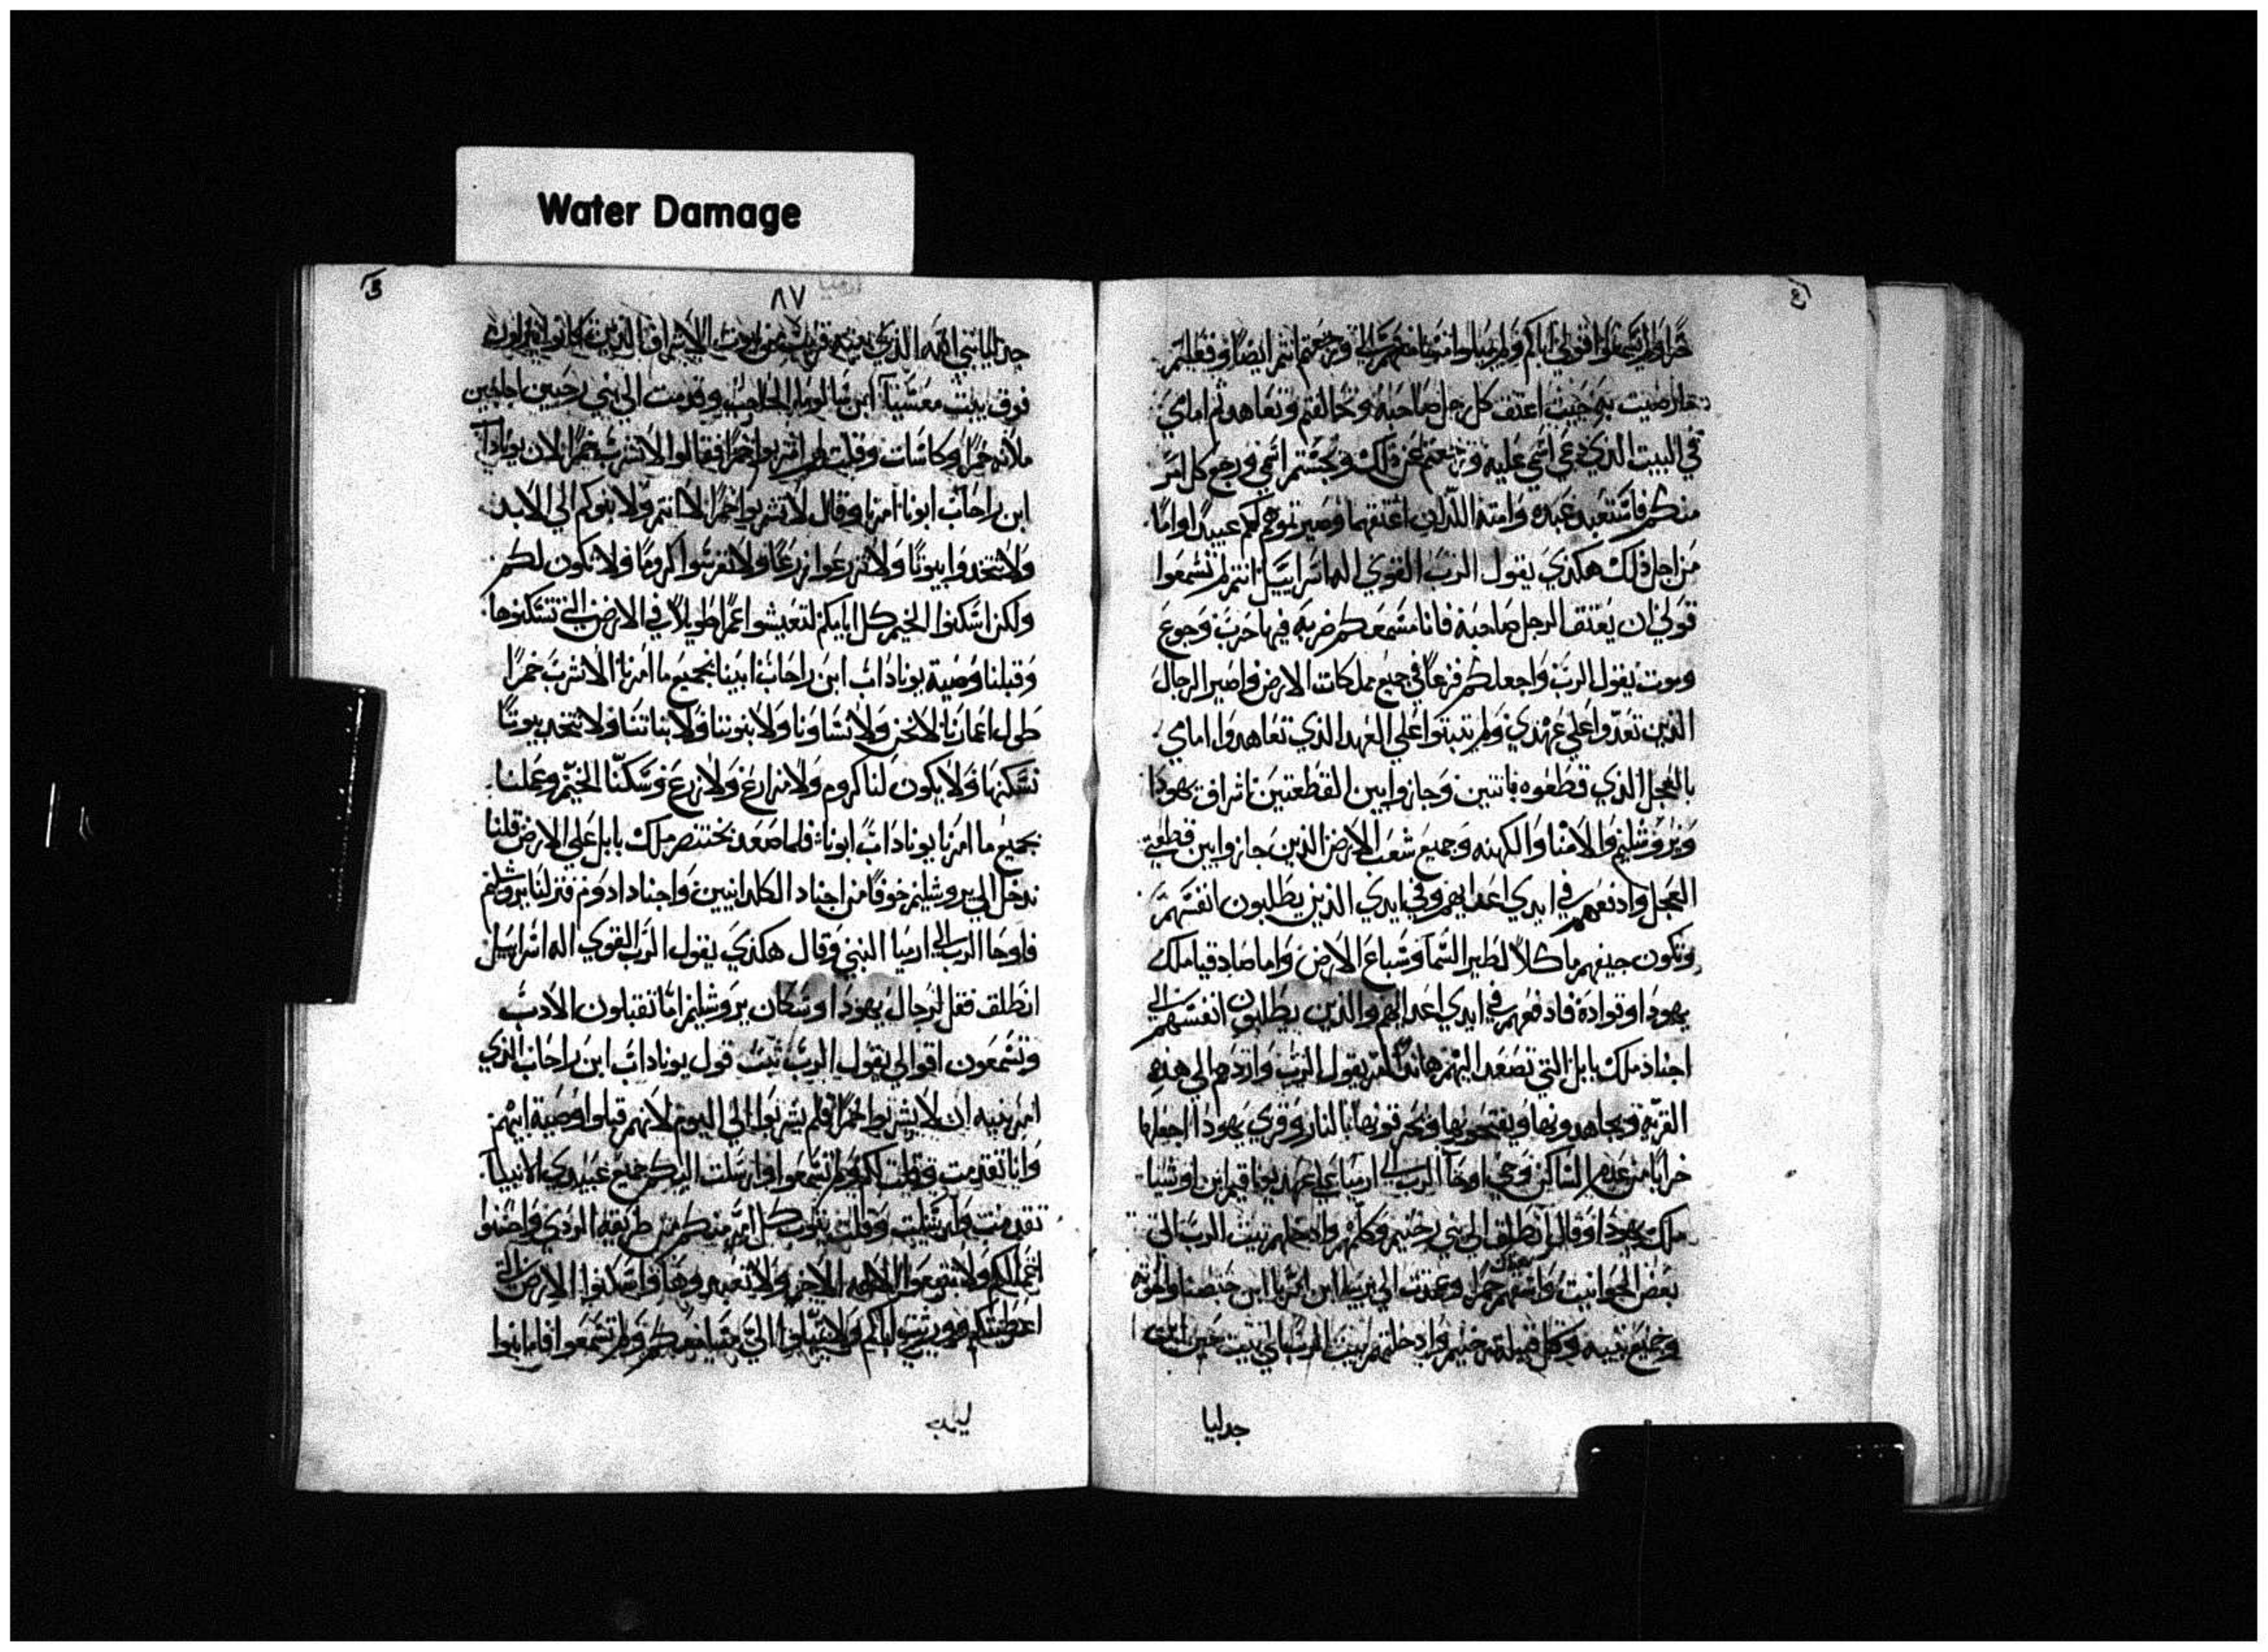 Water Damage
حرًا ولم تسمعوا اقوالي اباكم ولم يميلوا مسامعهم الي ورجعتم انتم ايضًا وفعلتم
اعتق كل رجل صاحبه وتعاهدتم امامي
في البيت الذي دعي اسمي عليه ورجعتم عن ذلك ونجستم اسمي ورجع كل امر
منكم فاستعبد عبده وامته اللذان اعتقهما وصيرتموهم لكم عبيدًا واما
من اجل ذلك هكذي يقول الرب القوي اله اسراييل انتم لم تسمعوا
قولي ان يعتق الرجل صاحبه فانا مسمعكم ضربه فيها حرب وجوع
وموت يقول الرب واجعلكم فزعًا في جميع مملكات الارض واصير الرجال
الذين تعدوا علي عهدي ولم تبتوا علي العهد الذي تعاهدوا امامي
بالعجل الذي قطعوه باتنين وجازوا بين القطعتين اشراف يهودا
ويروشليم والامنا والكهنه وجميع شعب الارض الذين جازوا بين قطعتي
العجل وادفعهم في ايدي اعدايهم وفي ايدي الذين يطلبون انفسهم
وتكون جيفهم ماكلاً لطير السما وسباع الارض واما صادقيا ملك
يهودا وقواده فادفعهم في ايدي اعدايهم والذين يطلبون انفسهم الي
اجناد ملك بابل التي تصعد اليهم هانذا امر يقول الرب واردهم الي هذه
القريه ويجاهدونها ويفتحونها ويحرقونها بالنار وقري يهودا اجعلها
خرابًا من عدم الساكن وحي اوحا الرب الي ارميا علي عهد يوناقيم ابن اوشيا
ملك يهودا وقال انطلق الي بني رخبيم وكلمهم وادخلهم بيت الرب الي
بعض الحوانيت واسقهم خمرًا وعدت الي ابن ارميا ابن حبصنا واخوته
وجميع بنيه وكل قبيلة رخبيم وادخلتهم بيت الرب الي بيت حين ابن
جدليا
٨٧
ارميا
جدليا نبي الله الذي بيته قريب من بيوت الاشراف الذين كانوا ينزلون
فوق بيت معسيا ابن سالوم الحاجب وقدمت الي بني رخبين اجاجين
ملانه خمرًا وكاسات وقلت لهم اشربوا خمرًا فقالوا لا نشرب خمرًا لان يوناداب
ابن راحاب ابونا امرنا وقال لا تشربوا خمرًا لا انتم ولا بنوكم الي الابد
ولا تتخدوا بيوتًا ولا تزرعوا زرعًا ولا تغرسوا كرومًا ولا تكون لكم
ولكن اسكنوا الخيم كل ايامكم لتعيشوا عمرًا طويلاً في الارض التي تسكنوها
وقبلنا وصية يوناداب ابن راحاب ابينا بجميع ما امرنا الا نشرب خمرًا
طول اعمارنا لا نحن ولا نساونا ولا بنونا ولا بناتنا ولا نتخد بيوتًا
نسكنها ولا يكون لنا كروم ولا مزارع ولا زرع وسكنّا الخيم وعملنا
بجميع ما امرنا يوناداب ابونا فلما صعد بختنصر ملك بابل علي الارض قلنا
ندخل الي يروشليم خوفًا من اجناد الكلدانيين واجناد ادوم فنزلنا يروشليم
فاوحا الرب الي ارميا النبي وقال هكذي يقول الرب القوي اله اسراييل
انطلق فقل لرجال يهودا وسكان يروشليم اما تقبلون الادب
وتسمعون اقوالي يقول الرب ثبت قول يوناداب ابن راحاب الذي
امر بنيه ان لا يشربوا خمرًا فلم يشربوا الي اليوم لانهم قبلوا وصية ابيهم
وانا تقدمت وقلت لكم ولم تسمعوا وارسلت اليكم جميع عبيدي الانبيا
تقدمت وارسلت وقلت يتوب كل امر منكم من طريقه الردي واحسنوا
اعمالكم ولا تتبعوا الالهه الاخر ولا تعبدوها واسكنوا الارض التي
اعطيتكم وورثت اباكم ولم تميلوا الي مسامعكم ولم تسمعوا